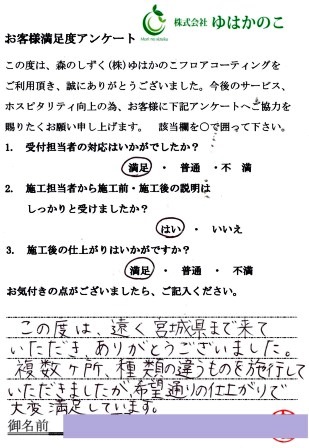 株式会社 ゆはかのこ
Mori no sizuku
お客様満足度アンケート
この度は、森のしずく(株)ゆはかのこフロアコーティングを
ご利用頂き、誠にありがとうございました。今後のサービス、
ホスピタリティ向上の為、お客様に下記アンケートへご協力を
賜りたくお願い申し上げます。 該当欄を〇で囲って下さい。
1. 受付担当者の対応はいかがでしたか?
満足 ・ 普通 ・不 満
2. 施工担当者から施工前・施工後の説明は
しっかりと受けましたか?
はい ・ いいえ
3. 施工後の仕上がりはいかがですか?
満足 ・ 普通 ・ 不満
お気付きの点がございましたら、ご記入ください。
この度は、遠く宮城県まで来て
いただき、ありがとうございました。
複数ヶ所、種類の違うものを施行して
いただきましたが、希望通りの仕上がりで
大変満足しています。
御名前